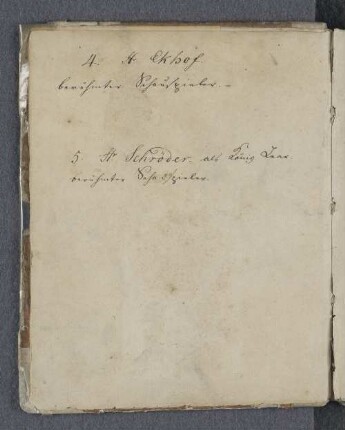 4. H Ekhof
berühmter Schauspieler.
5. Hr Schröder. als König Lear.
berühmter Schauspieler.